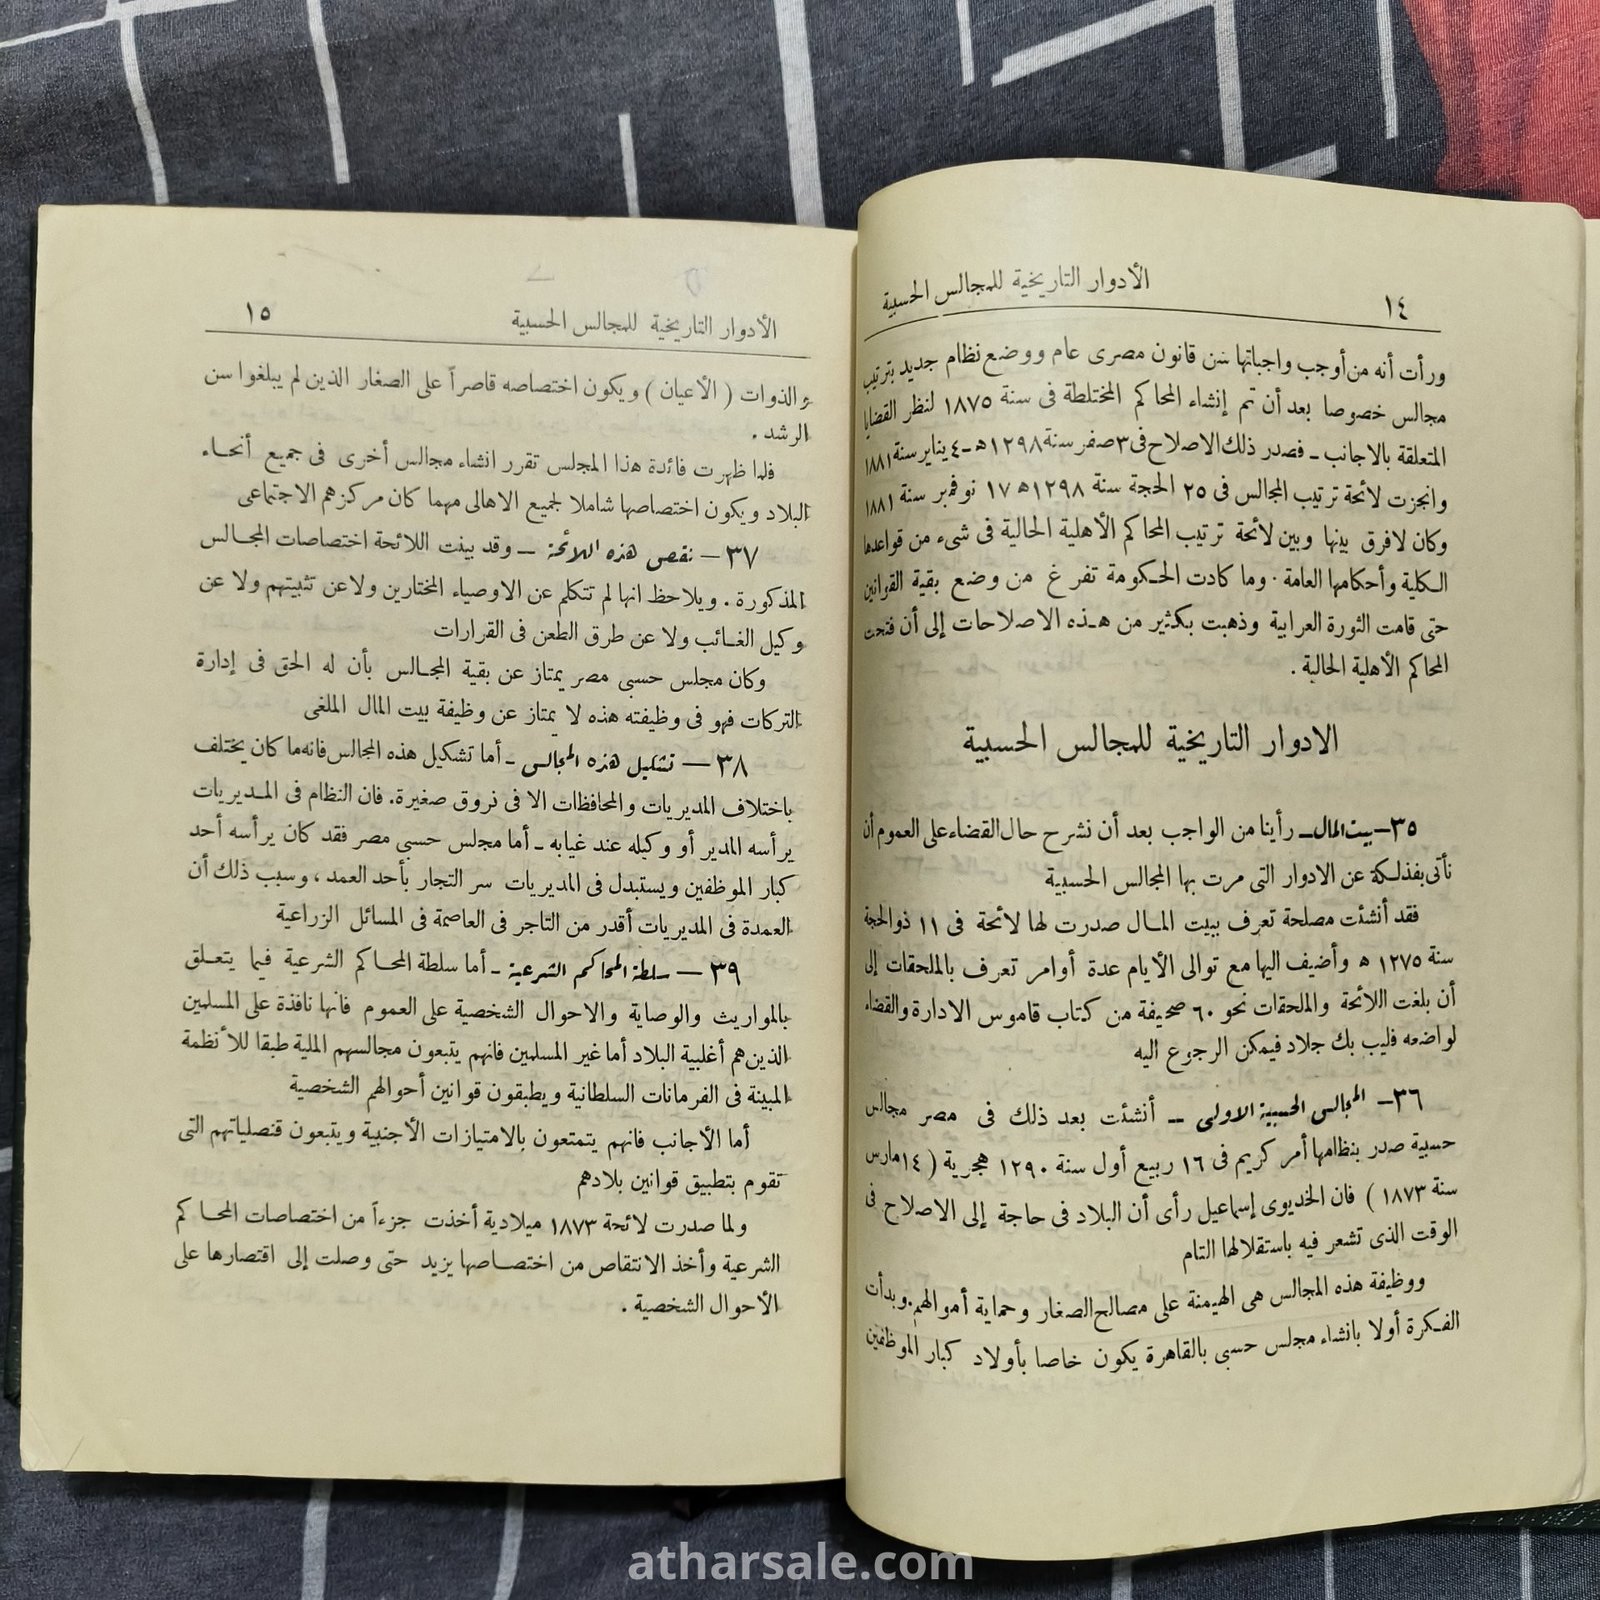 ١٤ الأدوار التاريخية للمجالس الحسبية
ورأت أنه من أوجب واجباتها سن قانون مصرى عام ووضع نظام جديد بترتيب
مجالس خصوصا بعد أن تم إنشاء المحاكم المختلطة فى سنة ١٨٧٥ لنظر القضايا
المتعلقة بالاجانب ـ فصدر ذلك الاصلاح فى ٣ صفر سنة ١٢٩٨ هـ ـ ٤ يناير سنة ١٨٨١
وانجزت لائحة ترتيب المجالس فى ٢٥ الحجة سنة ١٢٩٨ هـ ١٧ نوفمبر سنة ١٨٨١
وكان لافرق بينها وبين لائحة ترتيب المحاكم الأهلية الحالية فى شىء من قواعدها
الكلية وأحكامها العامة . وما كادت الحكومة تفرغ من وضع بقية القوانين
حتى قامت الثورة العرابية وذهبت بكثير من هذه الاصلاحات إلى أن فتحت
المحاكم الأهلية الحالية .
الادوار التاريخية للمجالس الحسبية
٣٥ـ بيت المال ـ رأينا من الواجب بعد أن نشرح حال القضاء على العموم أن
نأتى بفذلكة عن الادوار التى مرت بها المجالس الحسبية
فقد أنشئت مصلحة تعرف ببيت المال صدرت لها لائحة فى ١١ ذو الحجة
سنة ١٢٧٥ ه وأضيف اليها مع توالى الأيام عدة أوامر تعرف بالملحقات إلى
أن بلغت اللائحة والملحقات نحو ٦٠ صحيفة من كتاب قاموس الادارة والقضاء
لواضعه فليب بك جلاد فيمكن الرجوع اليه
٣٦ـ المجالس الحسبية الاولى ـ أنشئت بعد ذلك فى مصر مجالس
حسبية صدر بنظامها أمر كريم فى ١٦ ربيع أول سنة ١٢٩٠ هجرية ( ١٤ مارس
سنة ١٨٧٣ ) فان الخديوى إسماعيل رأى أن البلاد فى حاجة إلى الاصلاح فى
الوقت الذى تشعر فيه باستقلالها التام
ووظيفة هذه المجالس هى الهيمنة على مصالح الصغار وحماية أموالهم. وبدأت
الفكرة أولا بانشاء مجلس حسبى بالقاهرة يكون خاصا بأولاد كبار الموظفين
الأدوار التاريخية للمجالس الحسبية ١٥
والذوات ( الأعيان ) ويكون اختصاصه قاصراً على الصغار الذين لم يبلغوا سن
الرشد .
فلما ظهرت فائدة هذا المجلس تقرر انشاء مجالس أخرى فى جميع أنحاء
البلاد ويكون اختصاصها شاملا لجميع الاهالى مهما كان مركزهم الاجتماعى
٣٧ ـ نقص هذه اللائحة ـ وقد بينت اللائحة اختصاصات المجالس
المذكورة . ويلاحظ انها لم تتكلم عن الاوصياء المختارين ولاعن تثبيتهم ولا عن
وكيل الغائب ولا عن طرق الطعن فى القرارات
وكان مجلس حسبى مصر يمتاز عن بقية المجالس بأن له الحق فى إدارة
التركات فهو فى وظيفته هذه لا يمتاز عن وظيفة بيت المال الملغى
٣٨ ـ تشكيل هذه المجالس ـ أما تشكيل هذه المجالس فانه ما كان يختلف
باختلاف المديريات والمحافظات الا فى فروق صغيرة. فان النظام فى المديريات
يرأسه المدير أو وكيله عند غيابه ـ أما مجلس حسبى مصر فقد كان يرأسه أحد
كبار الموظفين ويستبدل فى المديريات سر التجار بأحد العمد ، وسبب ذلك أن
العمدة فى المديريات أقدر من التاجر فى العاصمة فى المسائل الزراعية
٣٩ ـ سلطة المحاكم الشرعية ـ أما سلطة المحاكم الشرعية فيما يتعلق
بالمواريث والوصاية والاحوال الشخصية على العموم فانها نافذة على المسلمين
الذين هم أغلبية البلاد أما غير المسلمين فانهم يتبعون مجالسهم الملية طبقا للأنظمة
المبينة فى الفرمانات السلطانية ويطبقون قوانين أحوالهم الشخصية
أما الأجانب فانهم يتمتعون بالامتيازات الأجنبية ويتبعون قنصلياتهم التى
تقوم بتطبيق قوانين بلادهم
ولما صدرت لائحة ١٨٧٣ ميلادية أخذت جزءاً من اختصاصات المحاكم
الشرعية وأخذ الانتقاص من اختصاصها يزيد حتى وصلت إلى اقتصارها على
الأحوال الشخصية .
atharsale.com